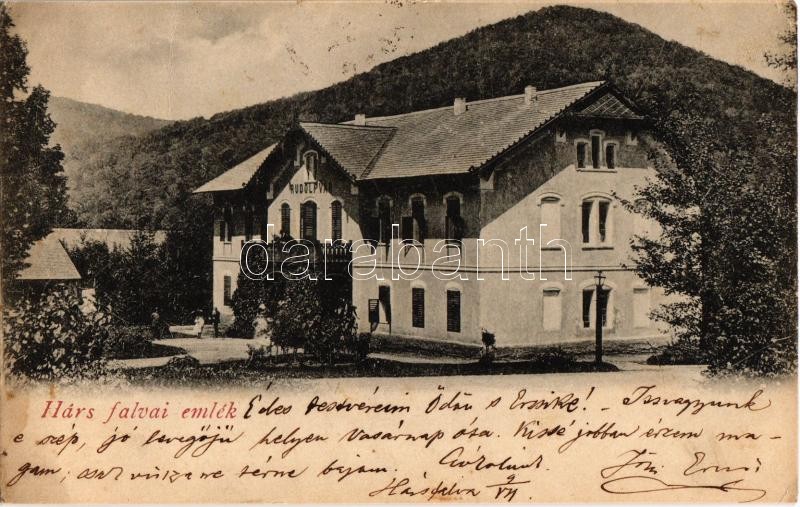 RUDOLFVÁR
darabanth
Hárs falvai emlék Édes testvéreim Ödön s Erzsike! – Itt vagyunk
e szép, jó levegőjű helyen Vasárnap óta. Kissé jobban érzem ma-
gam; csak vissza ne térne bajom. Csókolunk
Hársfalva 9/VII